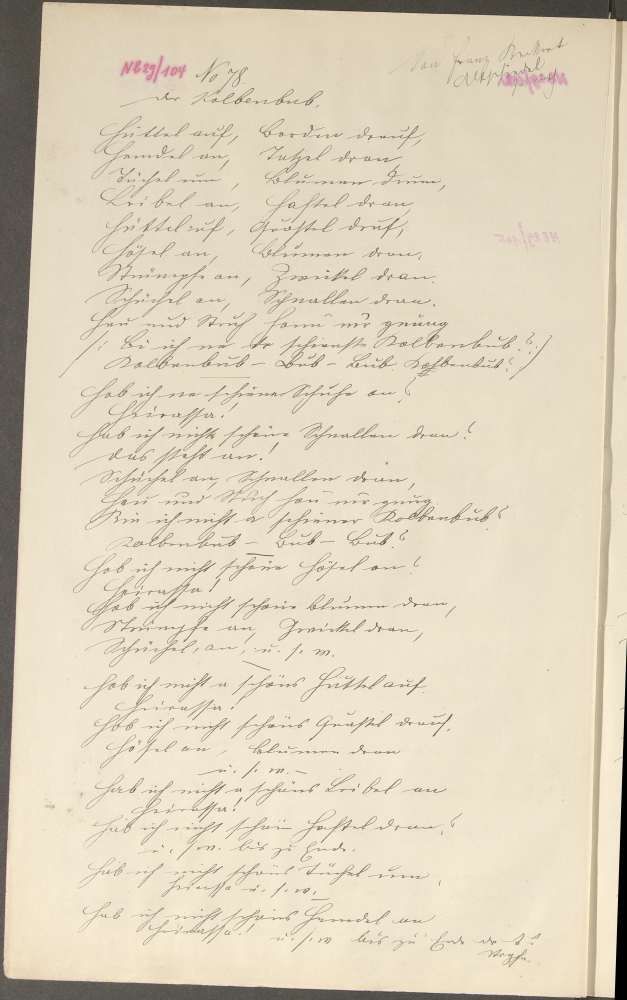 NB 29/104 No 78.
Von Franz
Der Kolbenbub.
Hüttel auf, Borden drauf,
Hemdel an, Tatzel dran,
Tüchel um, Blumen drum,
Leibel an, Haftel dran,
Hüttel auf, Quastel druf,
Hösel an, Blumen dran,
Strümpfe an, Zwickel dran.
Schüchel an, Schnallen dran.
Heu und Struh honn mir genung
/: Bi ich ne der schienste Kolbenbub? :/
Kolbenbub – Bub – Bub. Kolbenbub?
Hob ich ne schiene Schuhe an?
Heirassa!
Hab ich nicht schöne Schnallen dran?
Das steht an!
Schüchel an, Schnallen dran,
Heu und Struh hon mir genug
Bin ich nicht a schiener Kolbenbub?
Kolbenbub – Bub – Bub?
Hob ich nicht schöne Hösel an?
Heirassa!
Hob ich nicht schöne Blumen dran,
Strümpfe an, Zwickel dran,
Schüchel an, u. s. w.
Hob ich nicht a schöns Hüttel auf.
Heirassa!
Hob ich nicht schöns Quastel drauf.
Hösel an, Blumen dran
u. s. w.
Hab ich nicht a schöns Leibel an
Heirassa!
Hab ich nicht schöne Haftel dran?
u. s. w. bis zu Ende.
Hab ich nicht schöns Tüchel um,
Heirassa u. s. w.
Hab ich nicht schöns Hemdel an
Heirassa! u. s. w. bis zu Ende der